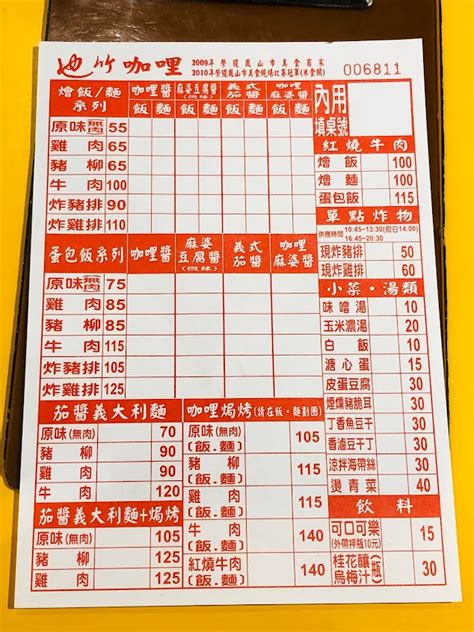 也竹咖哩
2009年 榮獲鳳山市美食商家
2010年 榮獲鳳山市美食現場比賽冠軍(米食類)
006811
燴飯/麵系列 咖哩醬 麻婆豆腐醬(微辣) 義式茄醬 咖哩麻婆醬
飯 麵 飯 麵 飯 麵 飯 麵
原味無肉 55
雞肉 65
豬柳 65
牛肉 100
炸豬排 90
炸雞排 110
蛋包飯系列 咖哩醬 麻婆豆腐醬(微辣) 義式茄醬 咖哩麻婆醬
原味無肉 75
雞肉 85
豬柳 85
牛肉 115
炸豬排 105
炸雞排 125
茄醬義大利麵
原味(無肉) 70
豬柳 90
雞肉 90
牛肉 120
茄醬義大利麵+焗烤
原味(無肉) 105
豬柳 125
雞肉 125
咖哩焗烤(請在飯、麵劃圈)
原味(無肉)(飯.麵) 105
豬柳(飯.麵) 115
雞肉(飯.麵) 115
牛肉(飯.麵) 140
紅燒牛肉(飯.麵) 140
內用
填桌號
紅燒牛肉
燴飯 100
燴麵 100
蛋包飯 115
單點炸物
供應時間 10:45~13:30(假日14:00)
16:45~20:30
現炸豬排 50
現炸雞排 60
小菜·湯類
味噌湯 10
玉米濃湯 20
白飯 10
溏心蛋 15
皮蛋豆腐 30
煙燻豬脆耳 30
丁香魚豆干 30
香滷豆干丁 30
涼拌海帶絲 30
燙青菜 40
飲料
可口可樂(外帶押瓶10元) 15
桂花釀烏梅汁(瓶) 30